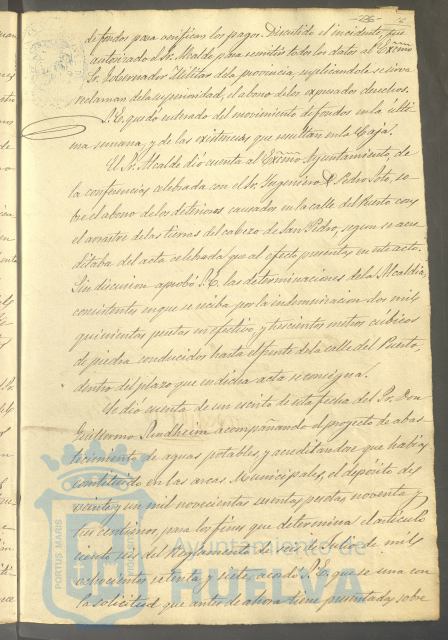 de fondos para verificar los pagos. Discutido el incidente, fué
autorizado el Sr. Alcalde para remitir todos los datos al Excmo
Sr. Gobernador Militar de la provincia, suplicándole se sirva
reclamar de la superioridad, el abono de los expresados derechos.
S. E. quedó enterado del movimiento de fondos en la últi
ma semana, y de las existencias que resultan en la Caja.
El Sr. Alcalde dió cuenta al Excmo Ayuntamiento, de
la conferencia celebrada con el Sr. Ingeniero D. Pedro Soto, so
bre el abono de los deterioros causados en la calle del Puerto con
el arrastre de las tierras del cabezo de San Pedro, segun se acre
ditaba del acta celebrada que al efecto presentaba en este acto.
Sin discusion aprobó S. E. las determinaciones de la Alcaldia,
consistentes en que se reciba por la indemnizacion dos mil
quinientas pesetas en efectivo, y trescientos metros cúbicos
de piedra conducidos hasta el punto de la calle del Puerto,
dentro del plazo que en dicha acta se consigna.
Se dió cuenta de un escrito de esta fecha del Sr. Don
Guillermo Sundheim acompañando el proyecto de abas
tecimiento de aguas potables, y acreditando que habia
constituido en las arcas Municipales, el depósito de
veinte y un mil novecientas cuenta pesetas noventa y
un centimos, para los fines que determina el artículo
ciento seis del Reglamento de seis de Julio de mil
ochocientos setenta y siete, acordó S. E. que se una con
la solicitud que antes de ahora tiene presentada, y sobre
Ayuntamiento de
HUELVA
PORTUS MARIS